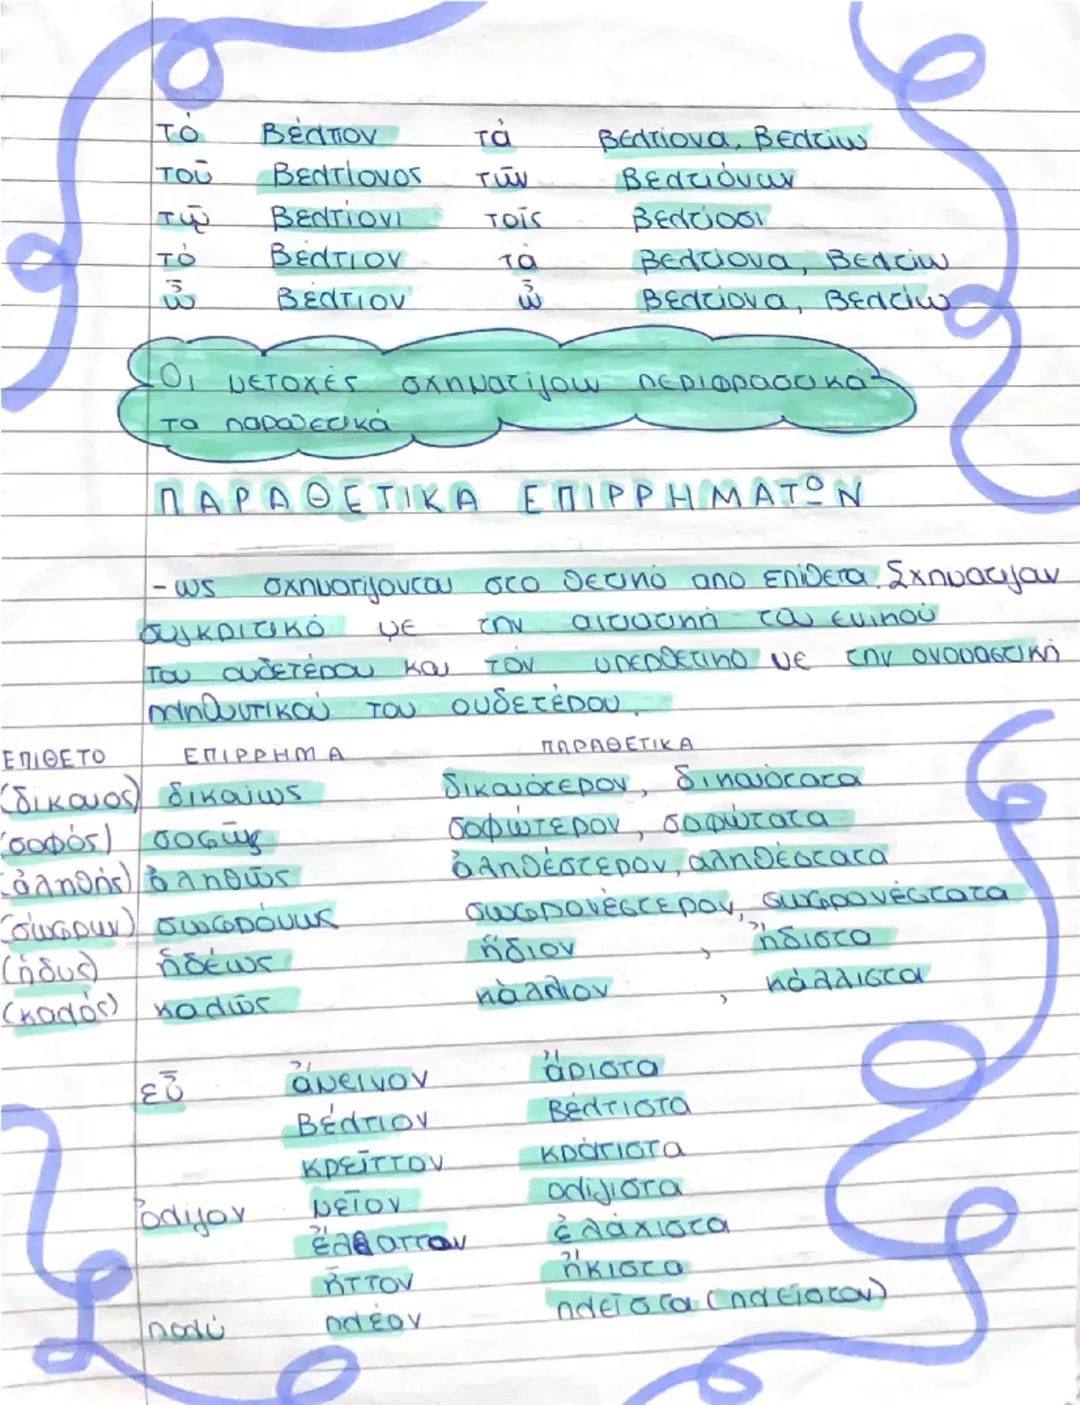 τὸ βέλτιον τὰ βελτίονα, βελτίω
τοῦ βελτίονος τῶν βελτιόνων
τῷ βελτίονι τοῖς βελτίοσι
τὸ βέλτιον τὰ βελτίονα, βελτίω
ὦ βέλτιον ὦ βελτίονα, βελτίω
Οι μετοχές σχηματίζουν περιφραστικά
τα παραθετικά
ΠΑΡΑΘΕΤΙΚΑ ΕΠΙΡΡΗΜΑΤΩΝ
-ως σχηματίζονται στο θετικό από επίθετα. Σχηματίζουν
συγκριτικό με την αιτιατική του ενικού
του ουδετέρου και τον υπερθετικό με την ονομαστική
πληθυντικού του ουδετέρου.
ΕΠΙΘΕΤΟ ΕΠΙΡΡΗΜΑ ΠΑΡΑΘΕΤΙΚΑ
(δίκαιος) δικαίως δικαιότερον, δικαιότατα
(σοφός) σοφῶς σοφώτερον, σοφώτατα
(ἀληθής) ἀληθῶς ἀληθέστερον, αληθέστατα
(σώφρων) σωφρόνως σωφρονέστερον, σωφρονέστατα
(ἡδύς) ἡδέως ἥδιον, ἥδιστα
(καλός) καλῶς κάλλιον, κάλλιστα
εὖ ἄμεινον ἄριστα
βέλτιον βέλτιστα
κρεῖττον κράτιστα
ὀλίγον μεῖον ολίγιστα
ἔλαττον ἐλάχιστα
ἧττον ἥκιστα
πολύ πλέον πλεῖστα (πλεῖστον)